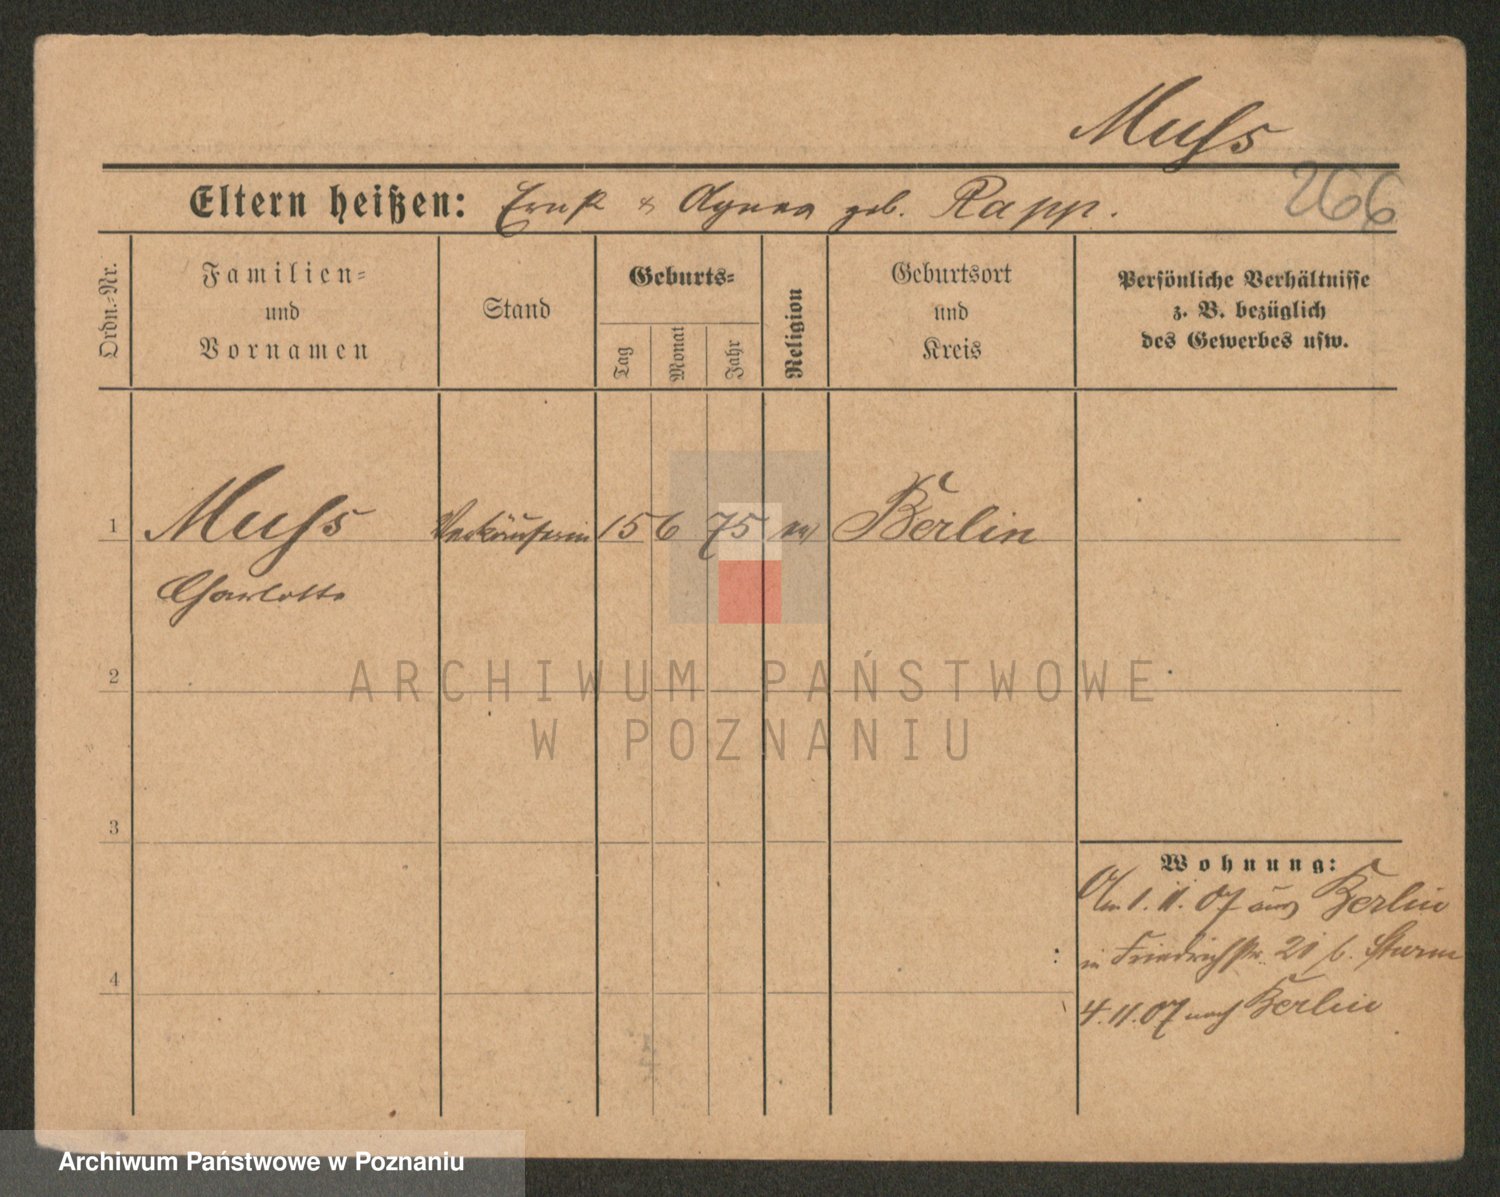 Muss
Eltern heißen: Ernst & Agnes geb. Rapp.
266
Ordn.-Nr.
Familien-
und
Vornamen
Stand
Geburts-
Tag
Monat
Jahr
Religion
Geburtsort
und
Kreis
Persönliche Verhältnisse
z. B. bezüglich
des Gewerbes usw.
1 Muss Verkäuferin 15 6 75 Berlin
Charlotte
2
ARCHIWUM PAŃSTWOWE
W POZNANIU
3
Wohnung:
Am 1. 11. 07 aus Berlin
in Friedrichstr. 21 b. Sturm
4
4. 11. 07 nach Berlin
Archiwum Państwowe w Poznaniu